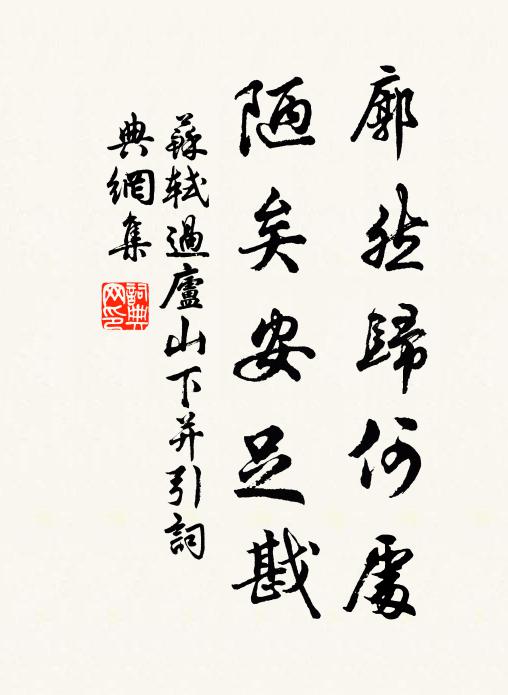 廓然歸何處
陋矣安足戡
蘇軾過廬山下并引詞
典網集
詞典
网印